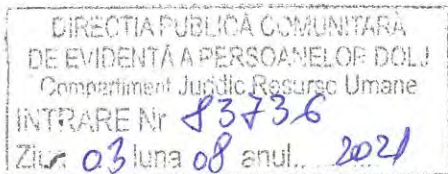 DIRECTIA PUBLICĂ COMUNITARĂ
DE EVIDENTĂ A PERSOANELOR DOLJ
Compartiment Juridic Resurse Umane
INTRARE Nr 83736
Ziua 03 luna 08 anul.. 2021